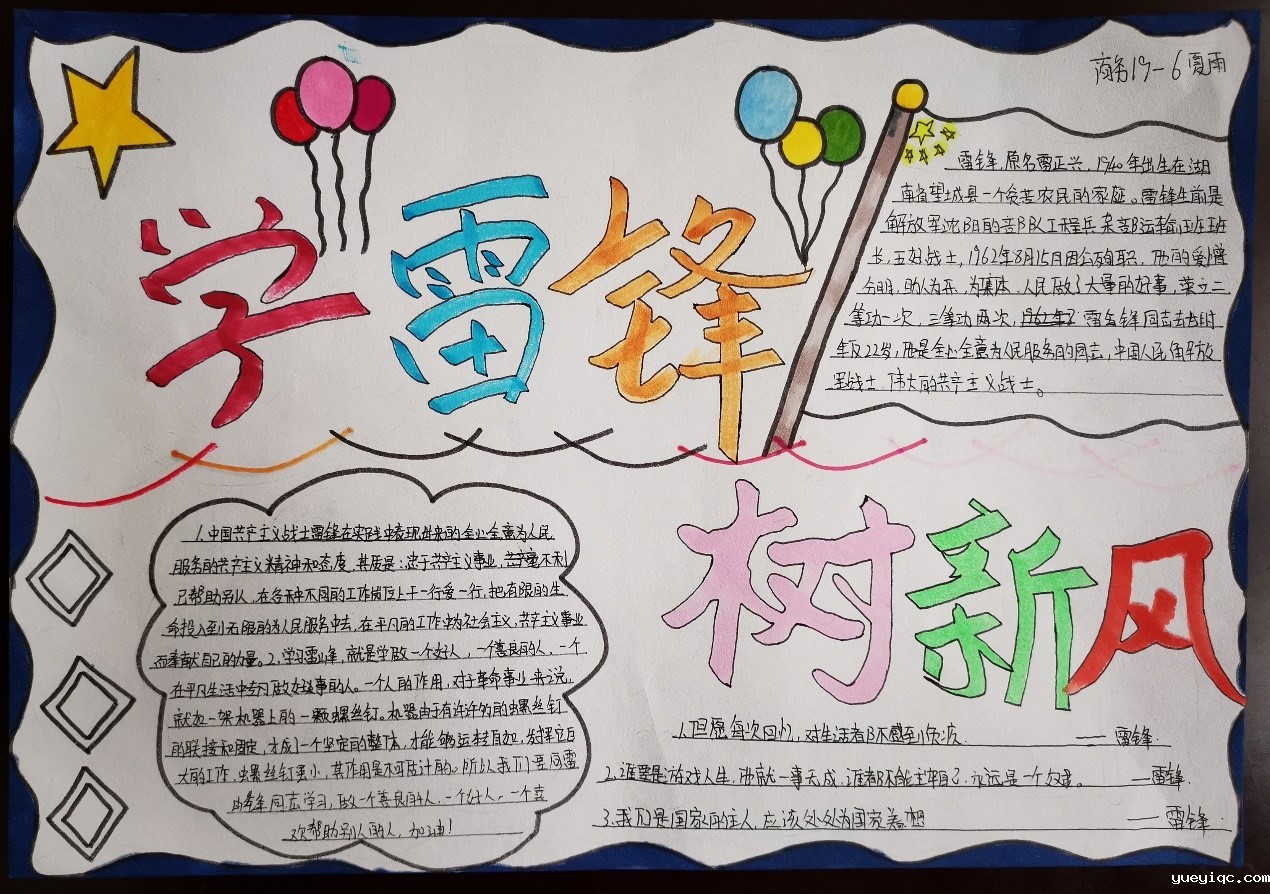 商务19-6 夏雨
学雷锋
雷锋,原名雷正兴,1940年出生在湖
南省望城县一个贫苦农民的家庭。雷锋生前是
解放军沈阳的部队工程兵某部运输班班
长,五好战士,1962年8月15日因公殉职,他的爱憎
分明,助人为乐,为集体、人民做了大量的好事,荣立二
等功一次,三等功两次,雷锋同志去世时
年仅22岁,他是全心全意为人民服务的同志,中国人民解放
军战士,伟大的共产主义战士。
1.中国共产主义战士雷锋在实践中表现出来的全心全意为人民
服务的共产主义精神和态度,其质是:忠于共产主义事业,不利
己帮助别人,在各种不同的工作岗位上干一行爱一行,把有限的生
命投入到无限的为人民服务中去,在平凡的工作中为社会主义,共产主义事业
而奉献自己的力量。2.学习雷锋,就是学做一个好人,一个善良的人,一个
在平凡生活中做好事的人。一个人的作用,对于革命事业来说,
就如一架机器上的一颗螺丝钉。机器由于有许许多的螺丝钉
的联接和固定,才成了一个坚定的整体,才能够运转自如,发挥它巨
大的工作,螺丝钉虽小,其作用是不可估计的。所以我们要向雷
锋同志学习,做一个善良的人,一个好人,一个喜
欢帮助别人的人,加油!
树新风
1.但愿每次回忆,对生活都不感到负疚 —— 雷锋.
2.谁要是游戏人生,他就一事无成,谁都不能主宰自己,永远是一个奴隶。 —雷锋.
3.我们是国家的主人,应该处处为国家着想 —— 雷锋.
yueyiqc.com